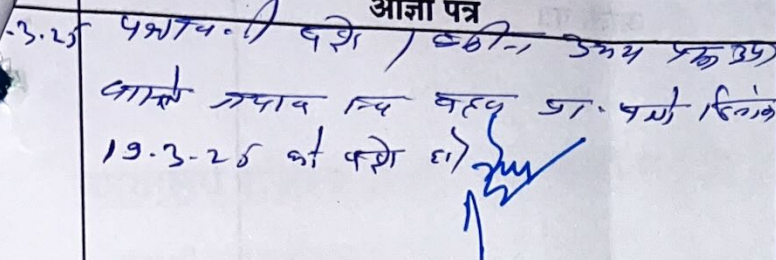 आज्ञा पत्र
.3.25 पत्रावली पेश / वकील उभय पक्ष उप
वास्ते जवाब व बहस प्रा. पत्र दिनांक
19.3.25 को पेश हो